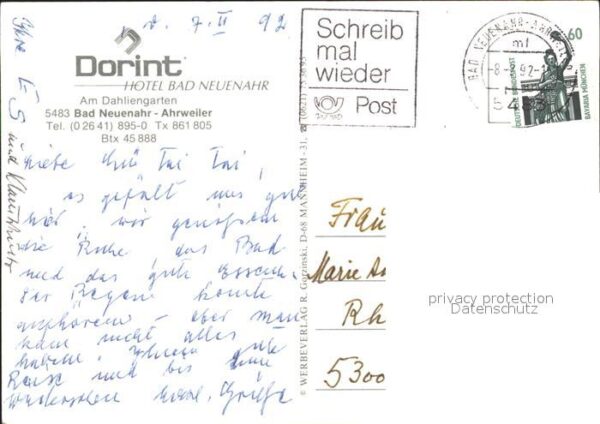 d. 7.II 92
Dorint
HOTEL BAD NEUENAHR
Am Dahliengarten
5483 Bad Neuenahr - Ahrweiler
Tel. (0 26 41) 895-0 Tx 861 805
Btx 45 888
Liebe
es gefällt uns gut
hier, wir genießen
die Ruhe das Bad
und das gute Essen.
Der Regen könnte
aufhören - aber man
kann nicht alles
haben. Ihnen gute
Reise und bis
Wiedersehen herzl. Grüße
Ihre
und
Schreib
mal
wieder
Post
BAD NEUENAHR-AHRWEILER
mf
60
DEUTSCHE BUNDESPOST
BAVARIA MÜNCHEN
© WERBEVERLAG R. Gorzinski, D-68 MANNHEIM-31
Frau
Marie
Rh
5300
privacy protection
Datenschutz